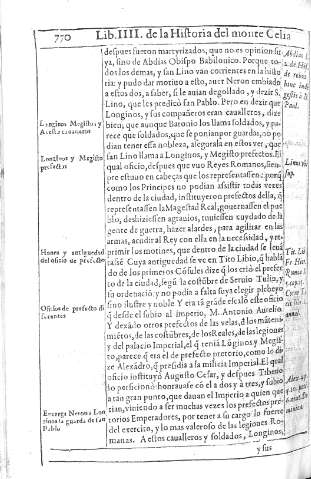 770 Lib. IIII. de la Historia del monte Celia
despues fueron martyrizados, que no es opinion su-
ya, sino de Abdias Obispo Babilonico. Porque to-
dos los demas, y san Lino van corrientes en la histo
ria: y pudo dar motiuo a esto, auer Neron embiado
a estos dos, a saber, si le auian degollado, y dezir S.
Lino, que les predicò san Pablo. Pero en dezir que
Longinos, y sus compañeros eran caualleros, dize
bien, que aunque Baronio los llama soldados, y pa-
rece que soldados, que se ponian por guardas, no po-
dian tener essa nobleza, assegurala en estos ver, que
san Lino llama a Longinos, y Megisto prefectos. El
qual oficio, despues que vuo Reyes Romanos, siem-
pre estauo en cabeças que los representassen: porq̃
como los Principes no podian assistir todas vezes
dentro de la ciudad, instituyeron prefectos della, q̃
representassen la Magestad Real, gouernassen el pue
blo, deshiziessen agrauios, tuuiessen cuydado de la
gente de guerra, hazer alardes, para agilitar en las
armas, acudir al Rey con ella en la necessidad, y re-
primir los motines, que dentro de la ciudad se leuã
tassẽ. Cuya antiguedad se ve en Tito Libio, q̃ hablã
do de los primeros Cõsules dize q̃ los criò el prefec-
to de la ciudad, segũ la costũbre de Seruio Tulio, y
su ordenaciõ, y no podia a falta suya elegir plebeyo
sino ilustre y noble Y era tã grãde escalõ este oficio
q̃ desde el subio al imperio, M. Antonio Aurelio.
Y dexãdo otros prefectos de las velas, d̃ los mãteni-
miẽtos, de las costũbres, de los Reales, de las legiones
y del palacio Imperial, el q̃ teniã Lõginos y Megis-
to, parece q̃ era el de prefecto pretorio, como lo di-
ze Alexãdro, q̃ presidia a la milicia Imperial. El qual
oficio instituyò Augusto Cesar, y despues Tiberio
lo perficionò: honrauase cõ el a dos y a tres, y subio
a tan gran punto, que dauan el Imperio a quien que
rian, viniendo a ser muchas vezes los prefectos pre-
torios Emperadores, por tener a su cargo lo fuerte
del exercito, y lo mas valeroso de las legiones Ro-
manas. A estos caualleros y soldados, Longinos,
y sus
Longinos Megistus y
Acesto caualleros
Longinos y Megisto
prefectos
Honra y antiguedad
del oficio de prefecto
Oficios de prefecto di
ferentes
Entrega Neron a Lon
ginos la guarda de san
Pablo